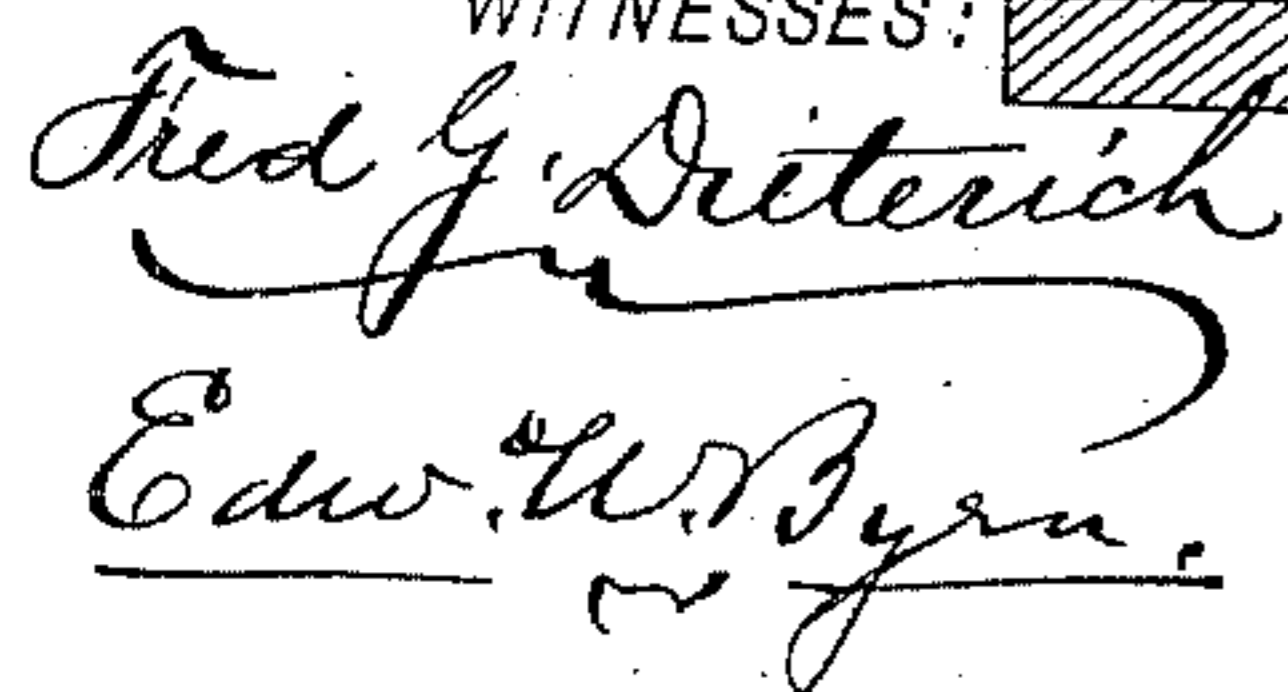 WITNESSES:
Fred G. Dieterich
Edw. W. Byrn.